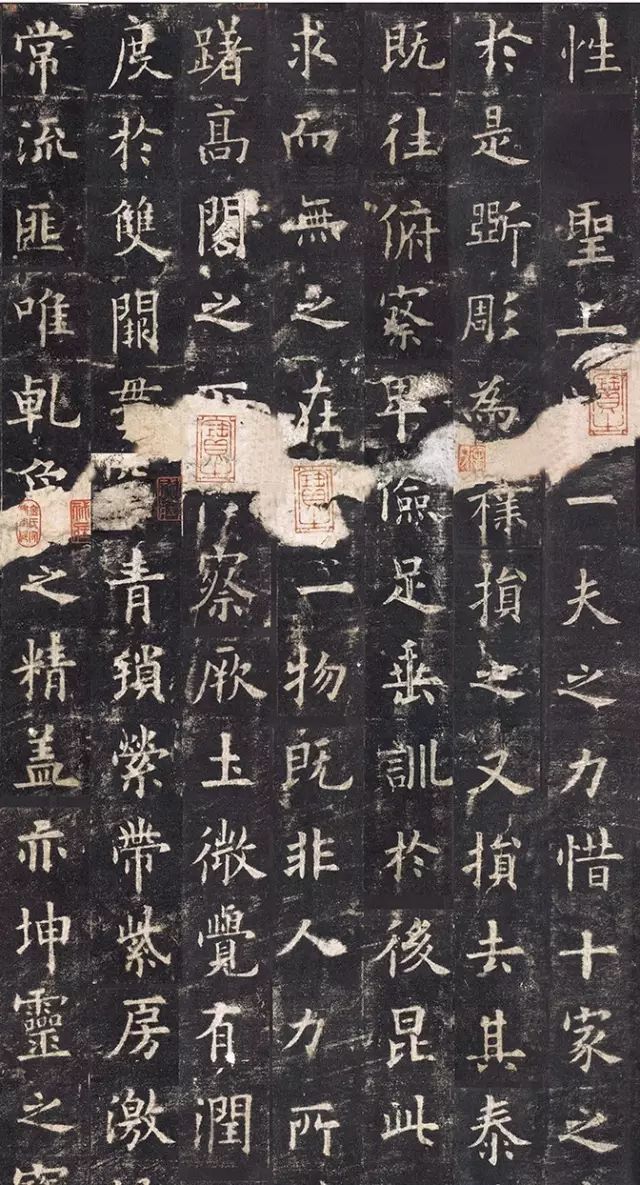 性聖上一夫之力惜十家之
於是斲彫為樸損之又損去其泰
既往俯察卑儉足垂訓於後昆此
求而無之在一物既非人力所
躇高閣之察厥土微覺有潤
度於雙闕貫青瑣縈帶紫房激
常流匪唯乹象之精盖亦坤靈之